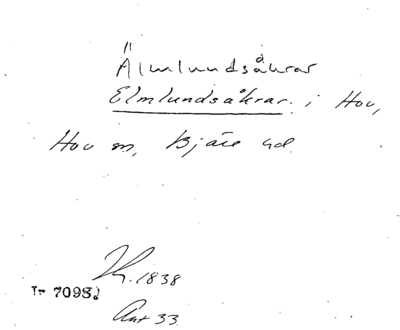 Älmlundsåkrar
Elmlundsåkrar. i Hov,
Hov sn, Bjäre hd.
1838
7098.
Ant 33